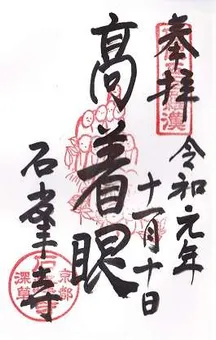 奉拝
令和元年
十一月十日
高着眼
石峯寺
京都
深草